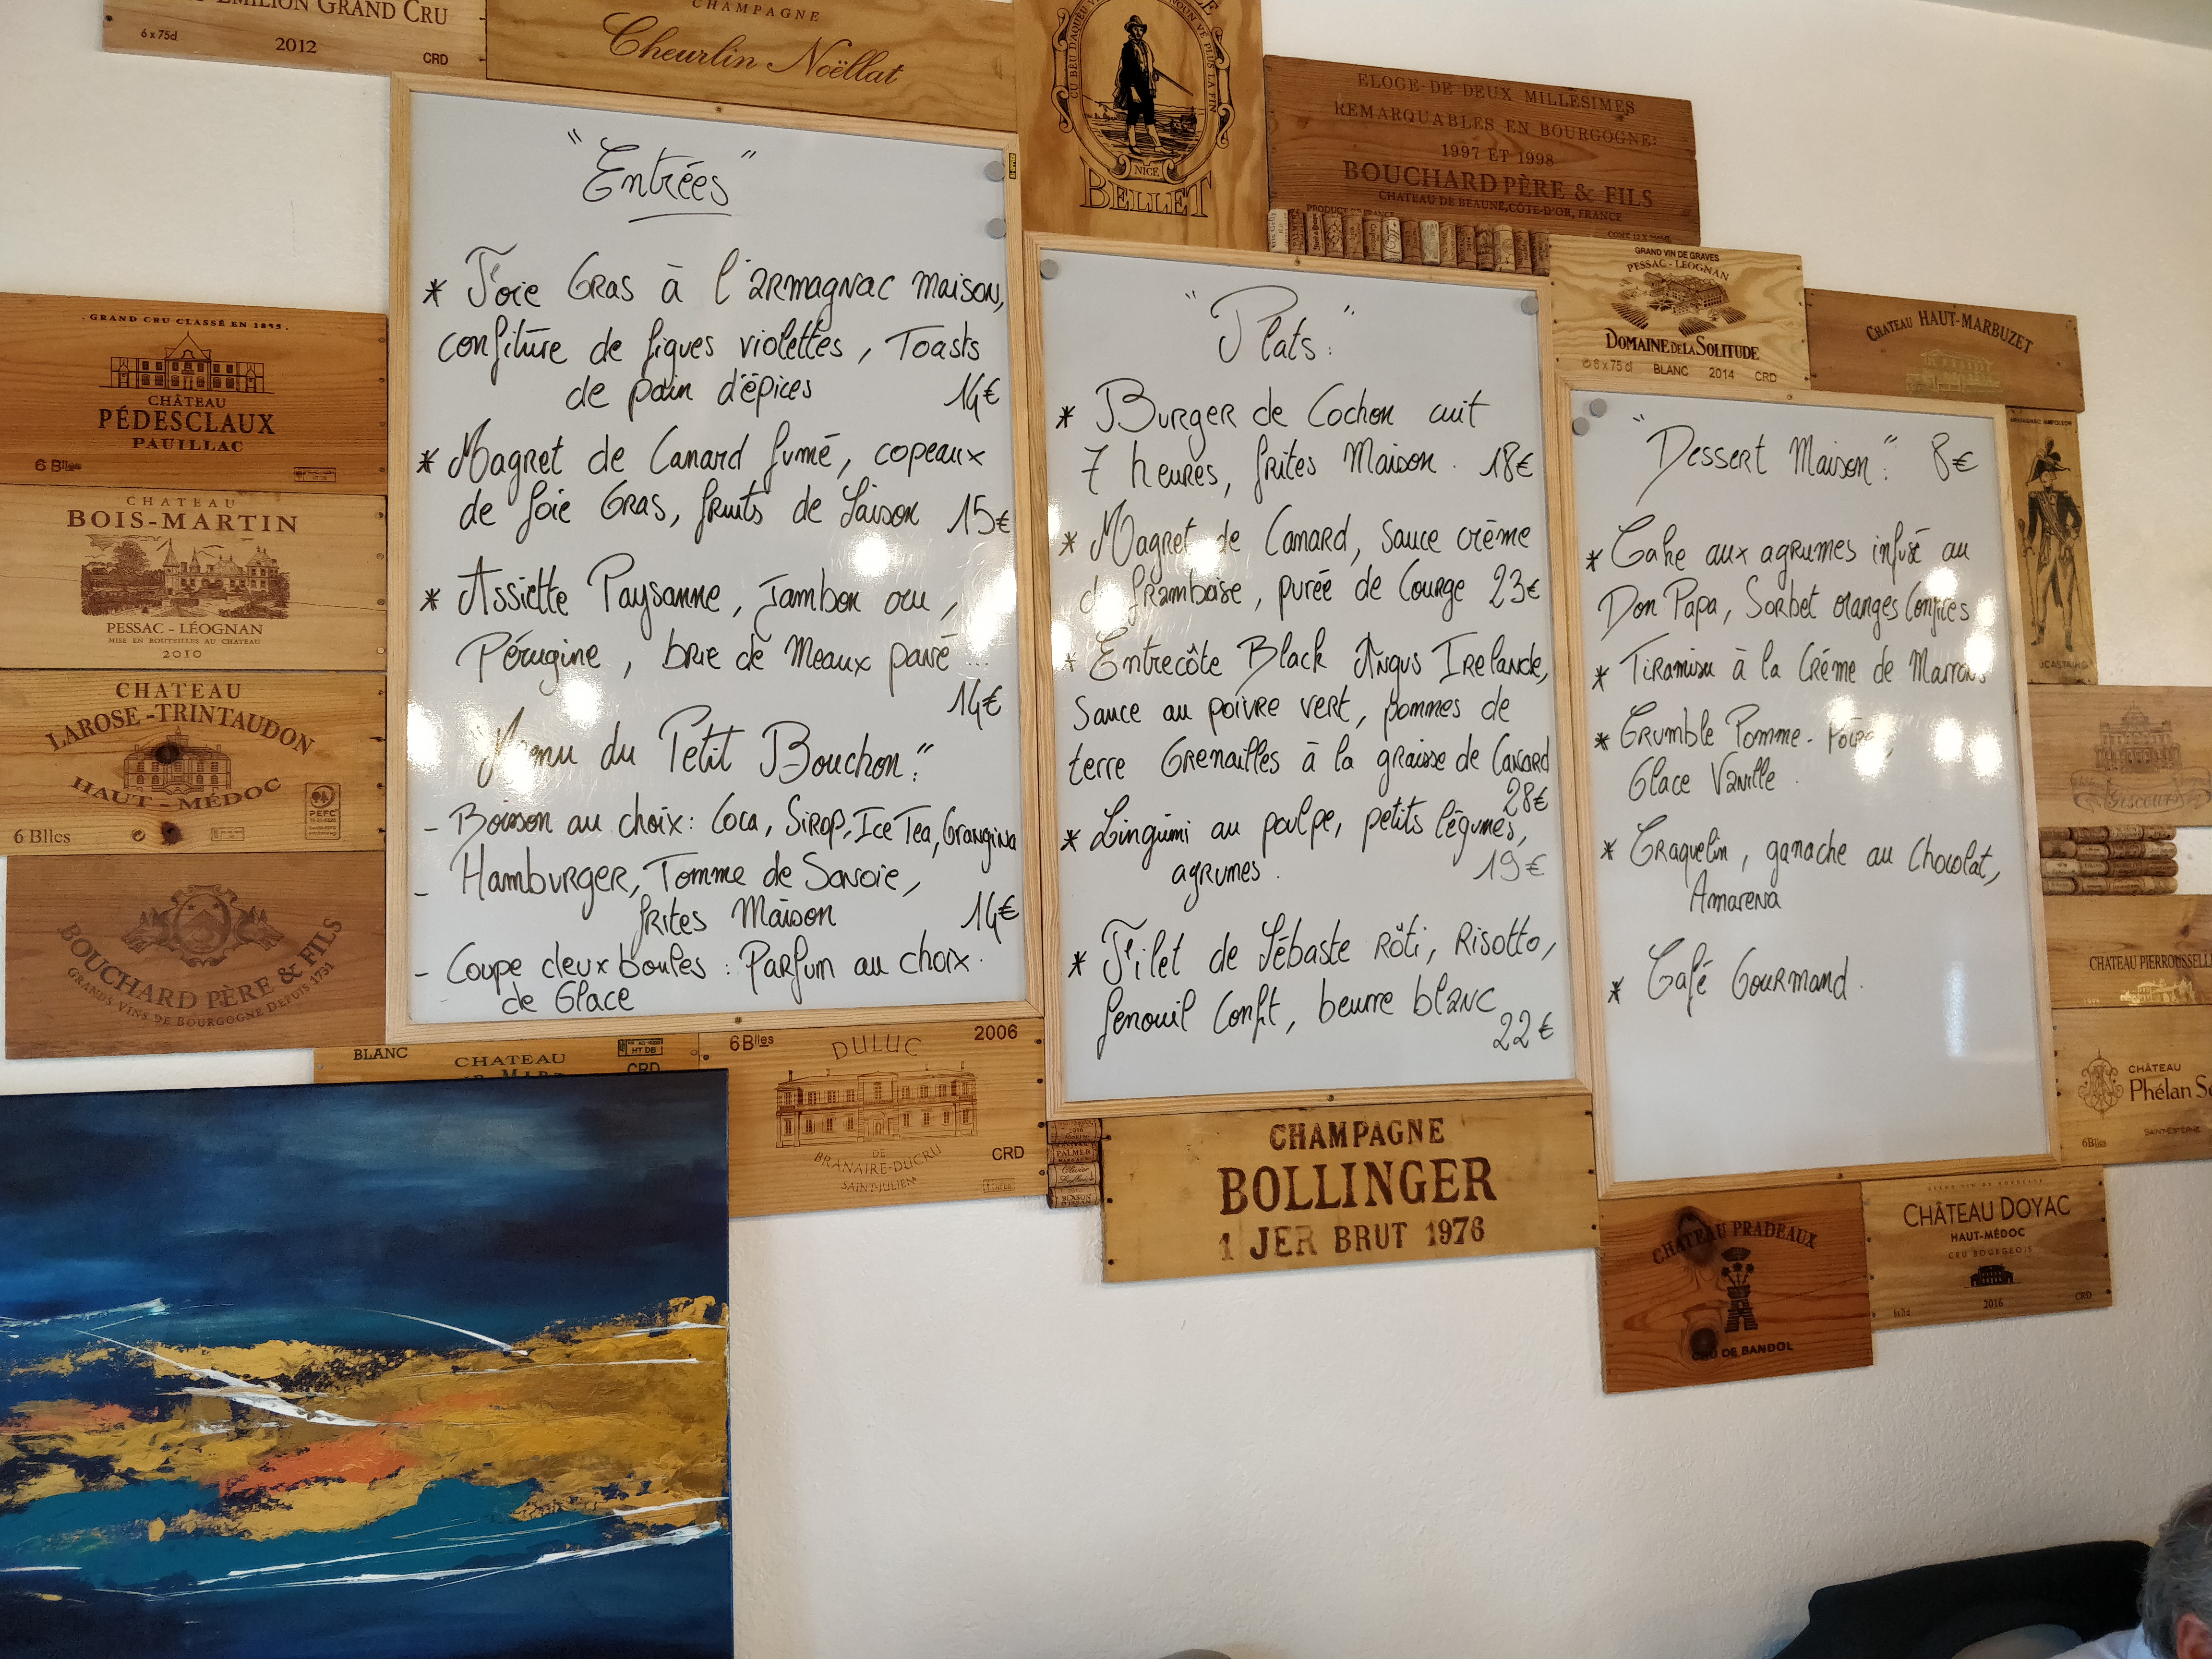 EMILION GRAND CRU
6 x 75cl
2012
CRD
CHAMPAGNE
Cheurlin Noëllat
CU BEU D'AQUEU
NOUN VÉ PLUS LA FIN
NICE
BELLET
ELOGE-DE DEUX MILLESIMES
REMARQUABLES EN BOURGOGNE:
1997 ET 1998
BOUCHARD PÈRE & FILS
CHATEAU DE BEAUNE, CÔTE-D'OR, FRANCE
PRODUCT OF FRANCE
GRAND VIN DE GRAVES
PESSAC-LEOGNAN
DOMAINE DE LA SOLITUDE
6 x 75 cl BLANC 2014 CRD
CHATEAU HAUT-MARBUZET
ARMAGNAC NAPOLEON
J.CASTAREDE
. GRAND CRU CLASSÉ EN 1855 .
CHÂTEAU
PÉDESCLAUX
PAUILLAC
6 Blles
CHATEAU
BOIS-MARTIN
PESSAC - LÉOGNAN
MISE EN BOUTEILLES AU CHATEAU
2010
CHATEAU
LAROSE-TRINTAUDON
HAUT-MÉDOC
PEFC
6 Blles
BOUCHARD PÈRE & FILS
GRANDS VINS DE BOURGOGNE DEPUIS 1731
"Entrées"
* Foie Gras à l'armagnac maison,
confiture de figues violettes, Toasts
de pain d'épices 14€
* Magret de Canard fumé, copeaux
de foie Gras, fruits de Saison 15€
* Assiette Paysanne, Jambon cru,
Pérugine, brie de Meaux pané ...
14€
"Menu du Petit Bouchon:"
- Boisson au choix: Coca, Sirop, Ice Tea, Orangina
- Hamburger, Tomme de Savoie,
frites Maison 14€
- Coupe deux boules : Parfum au choix.
de Glace
"Plats:"
* Burger de Cochon cuit
7 heures, frites Maison . 18€
* Magret de Canard, Sauce crème
de framboise, purée de Courge 23€
* Entrecôte Black Angus Irelande,
Sauce au poivre vert, pommes de
terre Grenailles à la graisse de Canard
28€
* Linguini au poulpe, petits légumes,
agrumes. 19€
* Filet de Sébaste Rôti, Risotto,
fenouil Confit, beurre blanc
22€
"Dessert Maison": 8€
* Cake aux agrumes infusé au
Don Papa, Sorbet oranges Confites
* Tiramisu à la Crème de Marrons
* Crumble Pomme-Poire,
Glace Vanille .
* Craquelin, ganache au Chocolat,
Amarena
* Café Gourmand.
Giscours
CHATEAU PIERROUSSELLE
CHÂTEAU
Phélan
SAINT-ESTÈPHE
6Blles
BLANC
CHATEAU
HT DB
CRD
6Blles
DULUC
2006
DE
BRANAIRE-DUCRU
SAINT-JULIEN
CRD
PALMER
CHAMPAGNE
BOLLINGER
1 JER BRUT 1976
CHATEAU PRADEAUX
CRU DE BANDOL
GRAND VIN DE BORDEAUX
CHÂTEAU DOYAC
HAUT-MÉDOC
CRU BOURGEOIS
2016
CRD